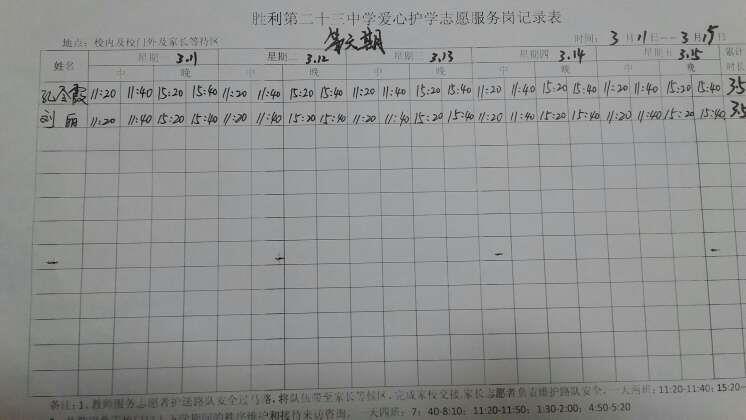 胜利第二十三中学爱心护学志愿服务岗记录表
地点：校内及校门外及家长等待区 第六期 时间：3月11日---3月15日
姓名 星期一 3.11 星期二 3.12 星期三 3.13 星期四 3.14 星期五 3.15 累计时长
中 晚 中 晚 中 晚 中 晚 中 晚
霞 11:20 11:40 15:20 15:40 11:20 11:40 15:20 15:40 11:20 11:40 15:20 15:40 11:20 11:40 15:20 15:40 11:20 11:40 15:20 15:40
刘丽 11:20 11:40 15:20 15:40 11:20 11:40 15:20 15:40 11:20 11:40 15:20 15:40 11:20 11:40 15:20 15:40 11:20 11:40 15:20 15:40
备注：1、教师服务志愿者护送路队安全过马路，将队伍带至家长等候区，完成家校交接，家长志愿者负责维护路队安全。一大两班：11:20-11:40；15:20-
上下学期间的秩序维护和接待来访咨询。一大四班：7：40-8:10；11:20-11:50；1:30-2:00；4:50-5:20